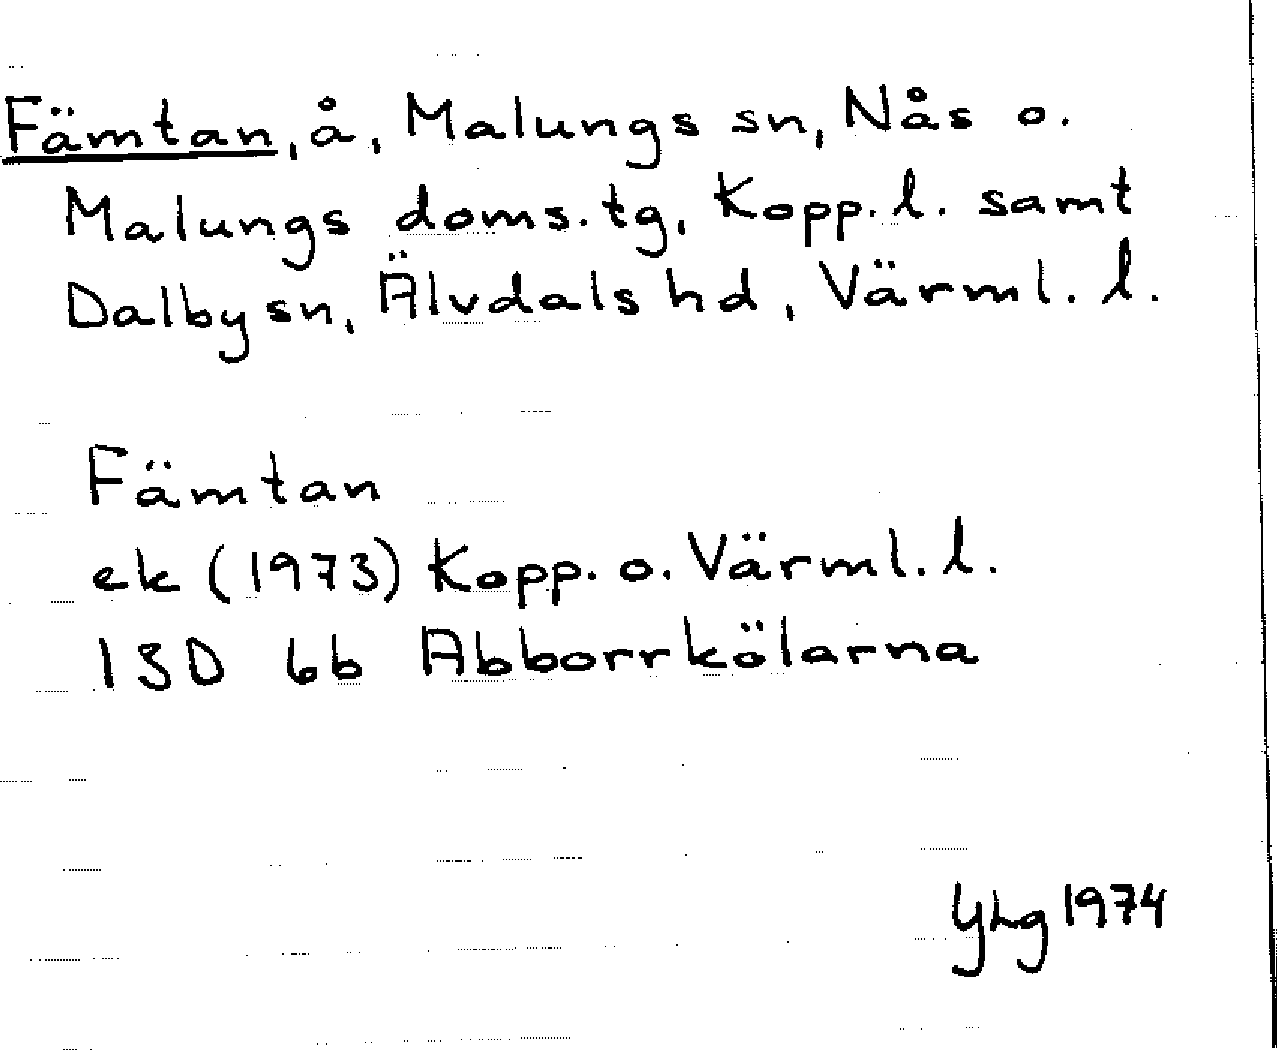 Fämtan, å, Malungs sn, Nås o.
Malungs doms.tg, Kopp.l. samt
Dalby sn, Älvdals hd, Värml.l.
Fämtan
ek (1973) Kopp. o. Värml.l.
13D 6b Abborrkölarna
Yhg 1974